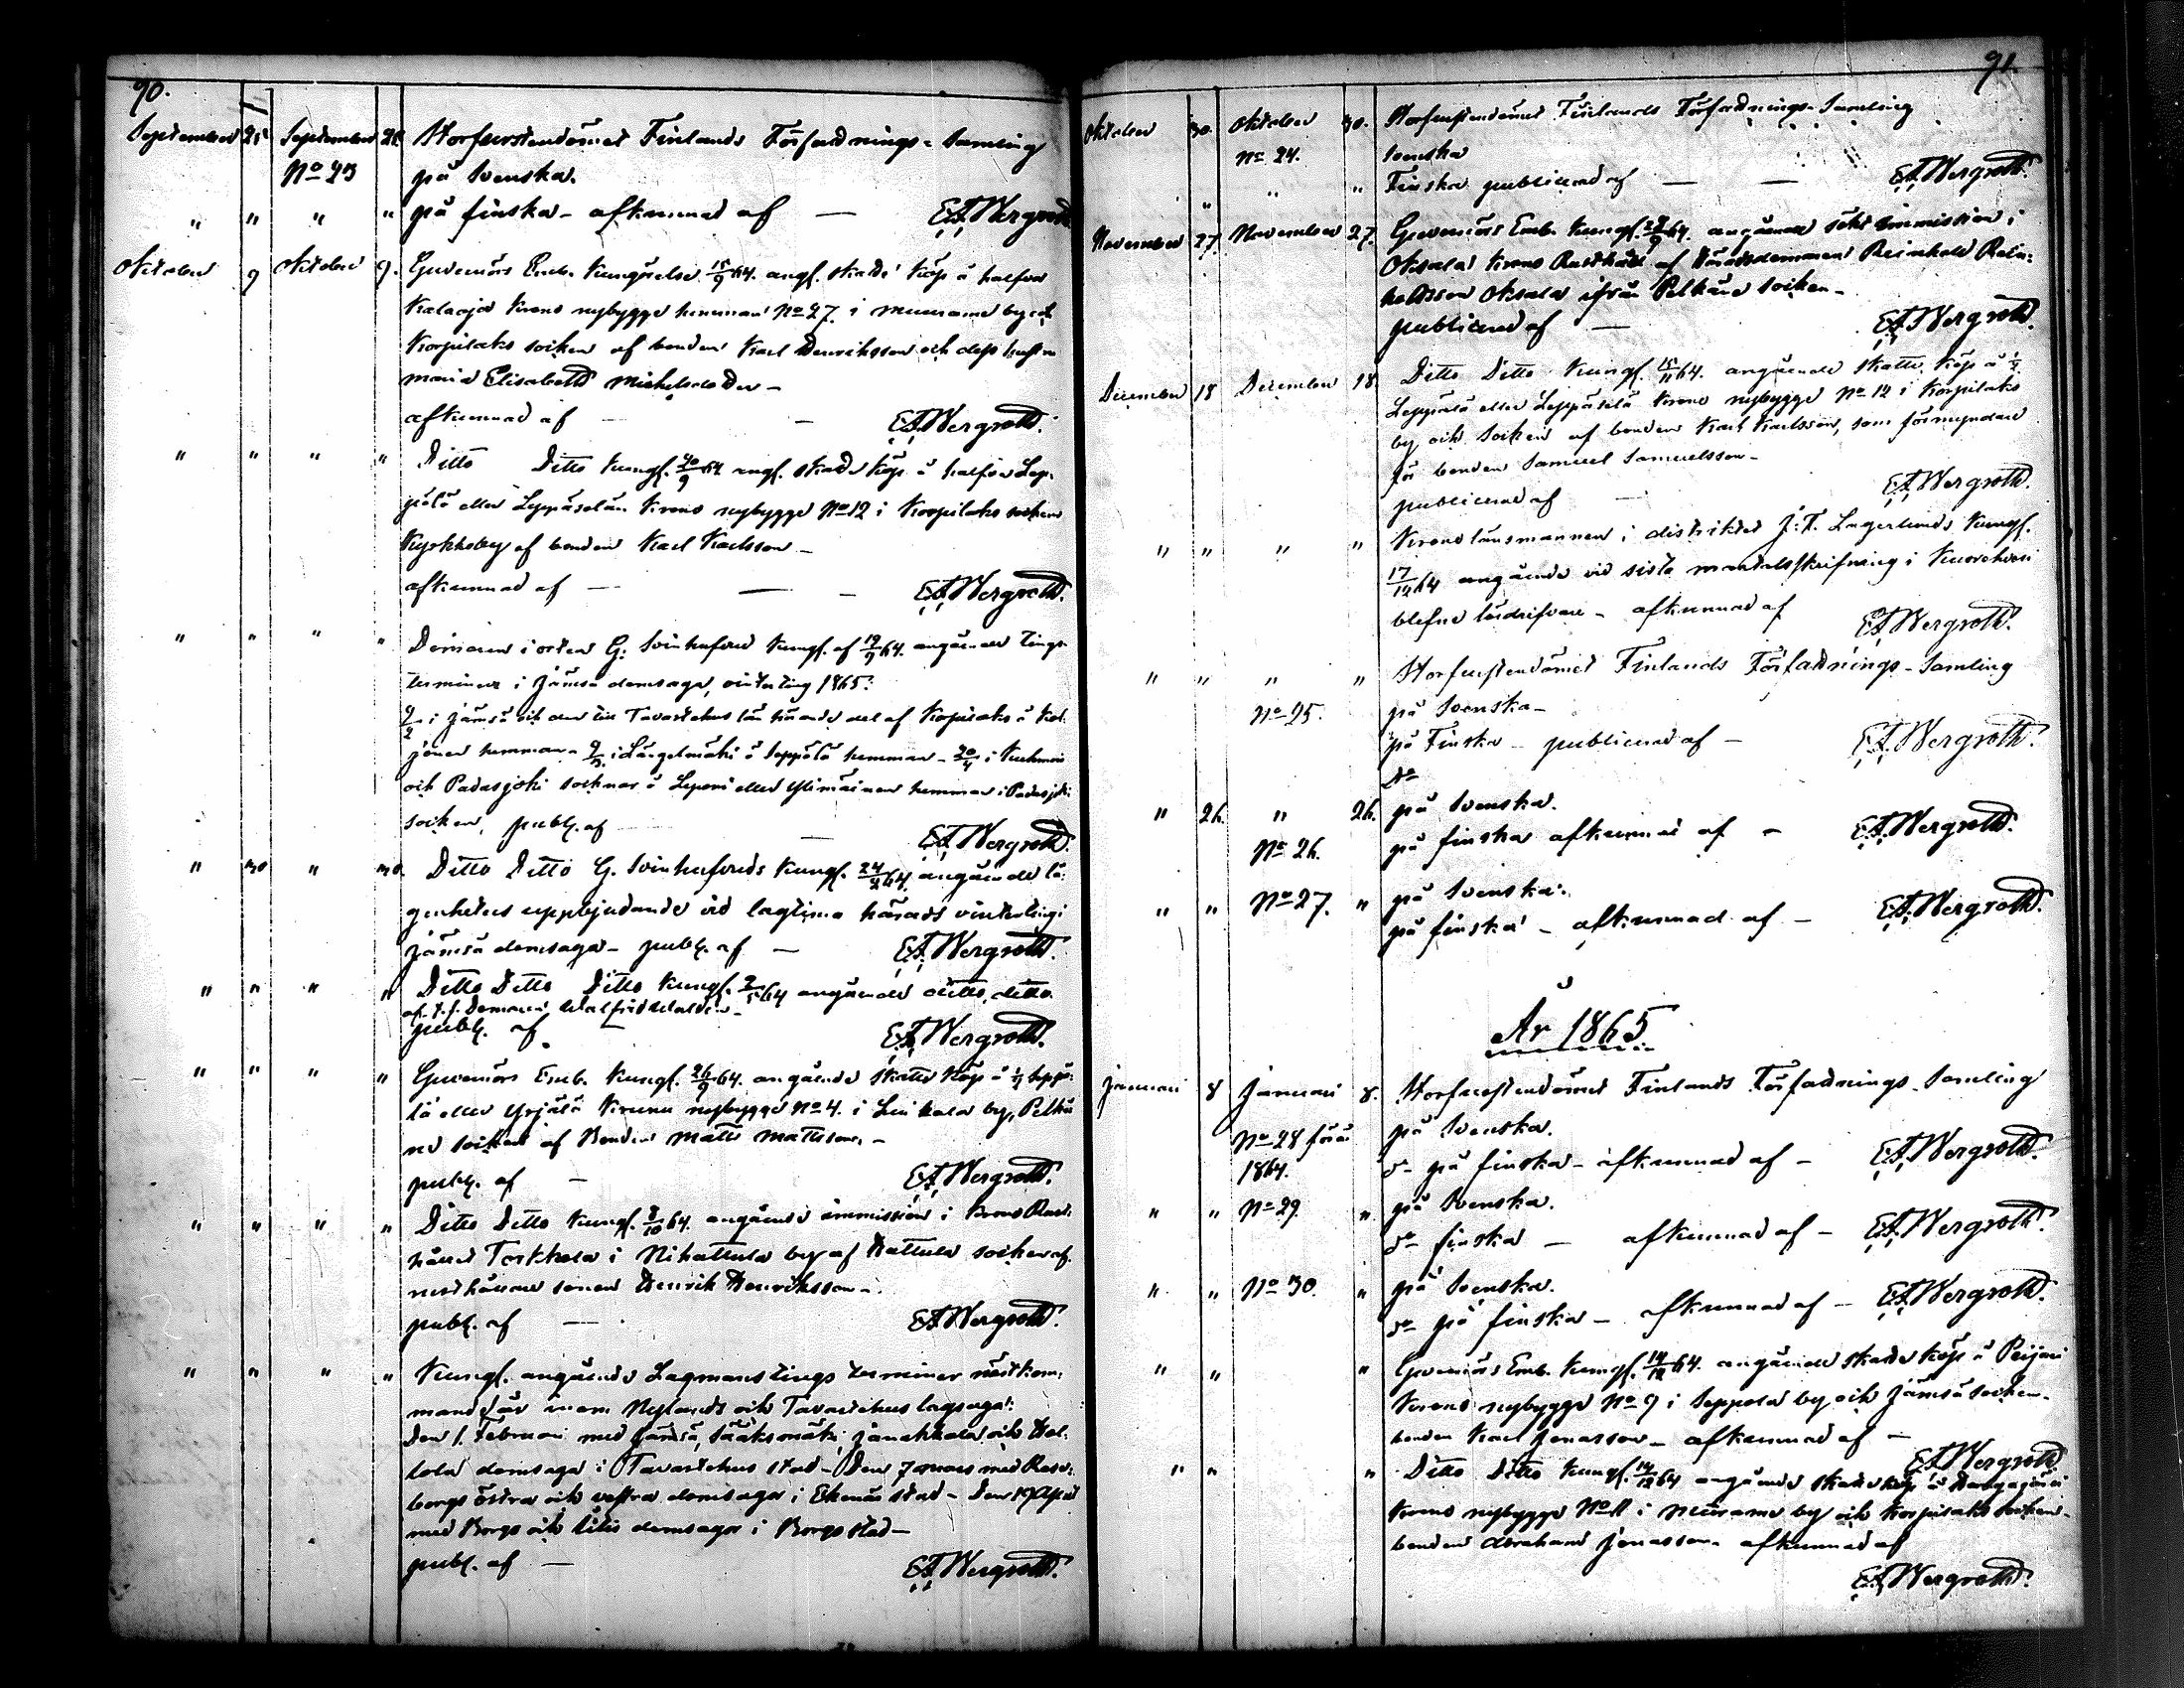 90.
September 25 September 25. Storfurstendömet Finlands Författnings-Samling
No 23 på Svenska.
" " " " på finska - afkunnad af — EA Wergroth
Oktober 9 Oktober 9. Guvernörs Emb. Kungörelse 15/9 64. angf. skatte köp å halfva
Kalaoja Krono nybygge hemman No 27. i Muurame by och
Korpilaks socken af bonden Karl Henriksson och dess hustru
Maria Elisabeth Michelsdotter -
afkunnad af — EA Wergroth.
" " " " Ditto Ditto Kungf. 20/9 64 angf. skatte köp å halfva Lep-
pälä eller Leppäselän Krono nybygge No 12 i Korpilaks sockens
Kyrkkoby af bonden Karl Karlsson -
afkunnad af — EA Wergroth.
" " " " Domaren i orten G. Svinhufvud Kungf. af 19/9 64. angående tings
terminer i Jämsä domsaga, vinterting 1865:
i Jämsä och den till Tavastehus län hörande del af Korpilaks å
hemman - i Längelmäki å Seppälä hemman - 20/4 i Kuhmois
och Padasjoki socknar å eller Ylimäinen hemman i Padasjoki
socken, publ. af — EA Wergroth.
" 30 " 30. Ditto Ditto G. Svinhufvuds Kungf. angående lä-
genheters uppbjudande vid lagtima härads vinterting i
Jämsä domsaga - publ. af — EA Wergroth.
" " " " Ditto Ditto Ditto Kungf. angående ditto, ditto.
af T. f. Domaren Walfrid
publ. af EA Wergroth.
" " " " Guvernörs Emb. Kungf. 26/9 64. angående skatte köp å Seppä-
lä eller Yrjälä Krono nybygge No 4. i by, Pelkä-
ne socken af Bonden Matts Mattsson. -
publ. af — EA Wergroth.
" " " " Ditto Ditto Kungf. 8/10 64. angående immission i Krono Rust-
hållet Torkkala i Nihattula by af Hattula socken af
rusthållare sonen Henrik Henriksson -
publ. af — EA Wergroth.
" " " " Kungf. angående Lagmanstings terminer nästkom-
mande år inom Nylands och Tavastehus lagsaga:
Den 1. Februari med Jämsä, Sääksmäki, Janakkala och Hol-
lola domsaga i Tavastehus stad - Den 7 mars med Rase-
borgs östra och vestra domsagor i Ekenäs stad - Den 19 April
med Borgå och Iitis domsagor i Borgå stad -
publ. af — EA Wergroth.
91.
Oktober 30. Oktober 30. Storfurstendömet Finlands Författnings-Samling
No 24. Svenska
" " " Finska publicerad af — — EA Wergroth.
November 27. November 27. Guvernörs Emb. Kungf. 64. angående sökt immission i
Oksala Krono Rusthåll af Häradsdomaren Reinhold Rein-
holdsson Oksala ifrån Pelkäne socken -
publicerad af — EA Wergroth.
December 18 December 18. Ditto Ditto Kungf. 15/11 64. angående skatte köp å 1/2
Leppälä eller Leppäselä Krono nybygge No 12 i Korpilaks
by och socken af bonden Karl Karlsson, som förmyndare
för bonden Samuel Samuelsson -
publicerad af — EA Wergroth.
" " " " Kronolänsmannen i distriktet J. F. Lagerlunds Kungf.
17/12 64 angående vid sista mantalsskrifning i Kuorehvesi
blefne lösdrifvare - afkunnad af EA Wergroth.
" " " " Storfurstendömet Finlands Författnings-Samling
No 25. på Svenska -
på Finska - publicerad af — EA Wergroth.
Do
" 26. " 26. på Svenska.
No 26. på finska afkunnad af — EA Wergroth.
" " No 27. " på Svenska.
på finska - afkunnad af — EA Wergroth.
År 1865
Januari 8 Januari 8. Storfurstendömet Finlands Författnings-Samling
No 28 för år på Svenska.
1864. do på finska - afkunnad af — EA Wergroth.
" " No 29. " på Svenska.
do finska — afkunnad af — EA Wergroth.
" " No 30. " på Svenska.
do på finska - afkunnad af — EA Wergroth.
" " " Guvernörs Emb. Kungf. 14/12 64. angående skatte köp å Peijari
Krono nybygge No 9 i Seppola by och Jämsä socken -
bonden Karl Jonasson - afkunnad af — EA Wergroth
" " " Ditto Ditto Kungf. 14/12 64 angående skatte köp å
Krono nybygge No 11 i Muurame by och Korpilaks socken -
bonden Abraham Jonasson - afkunnad af
EA Wergroth.